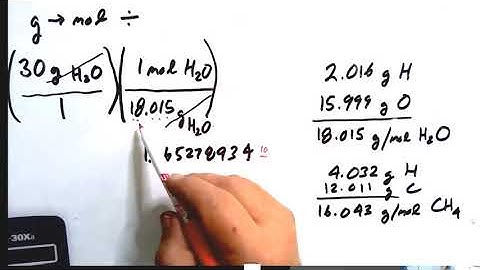 g → mol ÷
(30 g H₂O / 1) (1 mol H₂O / 18.015 g H₂O)
2.016 g H
15.999 g O
18.015 g/mol H₂O
4.032 g H
12.011 g C
16.043 g/mol CH₄
-30Xa